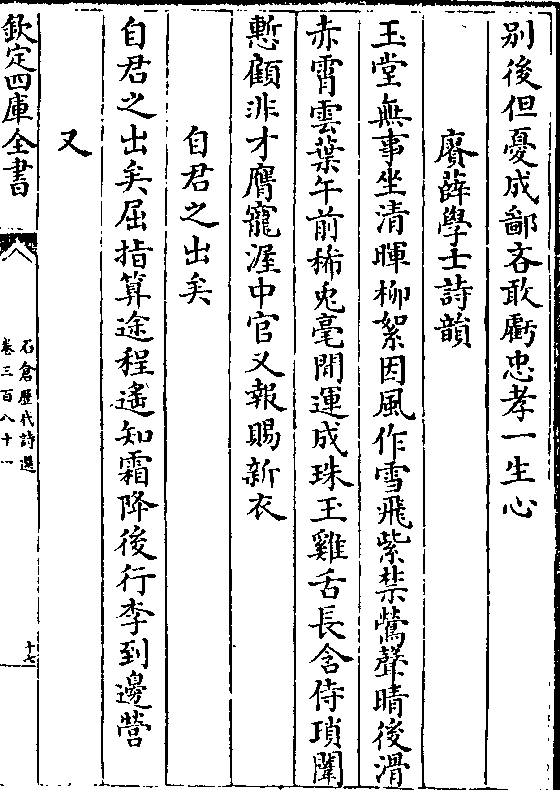 別後但憂成鄙吝敢虧忠孝一生心
賡薛學士詩韻
玉堂無事坐清暉柳絮因風作雪飛紫禁鶯聲晴後滑
赤霄雲葉午前稀兔毫閒運成珠玉雞舌長含侍瑣闈
慙顧非才膺寵渥中官又報賜新衣
自君之出矣
自君之出矣屈指算途程遙知霜降後行李到邊營
又
欽定四庫全書
石倉歷代詩選
卷三百八十一
十七